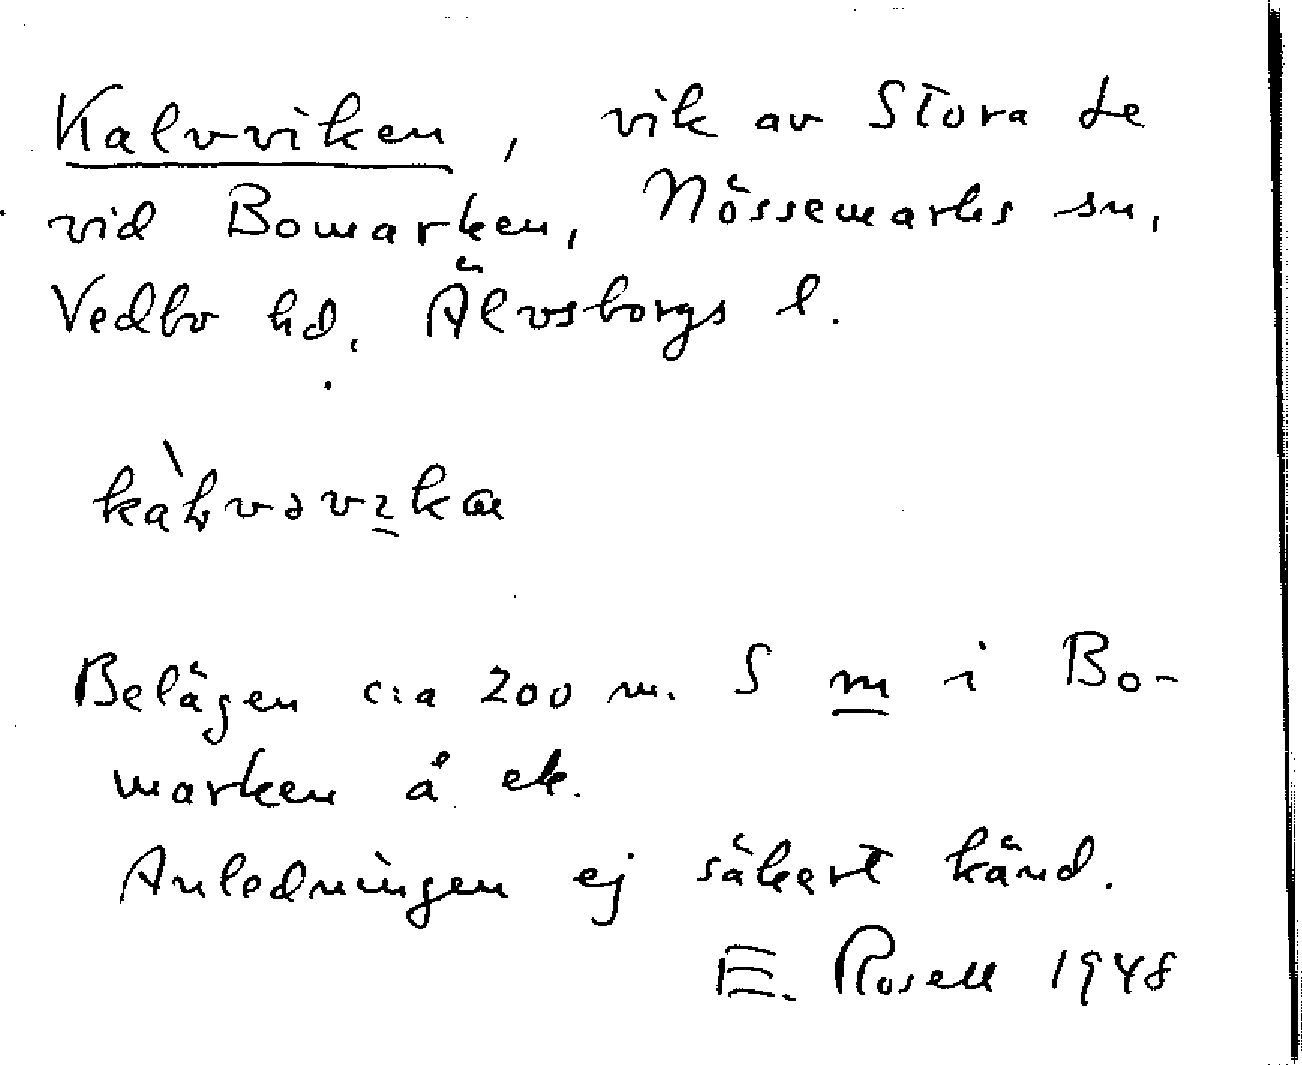 Kalvviken, vik av Stora Le
vid Bomarken, Nössemarks sn,
Vedbo hd, Älvsborgs l.
Belägen c:a 200 m. S m i Bo-
marken å ek.
Anledningen ej säkert känd.
E. Rosell 1948